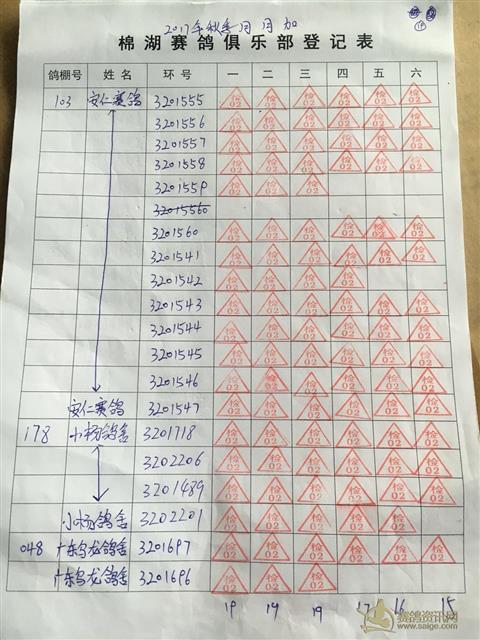 2017年秋季 月 月 加
19
棉湖赛鸽俱乐部登记表
鸽棚号 姓名 环号 一 二 三 四 五 六
103 安仁赛鸽 3201555 检02 检02 检02 检02 检02 检02
3201556 检02 检02 检02 检02 检02 检02
3201557 检02 检02 检02 检02 检02 检02
3201558 检02 检02 检02 检02 检02 检02
3201559 检02 检02 检02
32015560
3201560 检02 检02 检02 检02 检02 检02
3201541 检02 检02 检02 检02 检02 检02
3201542 检02 检02 检02 检02
3201543 检02 检02 检02 检02 检02 检02
3201544 检02 检02 检02 检02 检02 检02
3201545 检02 检02 检02 检02 检02 检02
3201546 检02 检02 检02 检02 检02 检02
安仁赛鸽 3201547 检02 检02 检02 检02 检02 检02
178 小杨鸽舍 3201718 检02 检02 检02 检02 检02 检02
3202206 检02 检02 检02 检02 检02 检02
3201489 检02 检02 检02 检02 检02 检02
小杨鸽舍 3202201 检02 检02 检02 检02 检02
048 广东乌龙鸽舍 3201697 检02 检02 检02 检02 检02 检02
广东乌龙鸽舍 3201696 检02 检02 检02
19 19 19 17 16 15
赛鸽资讯网
www.saige.com